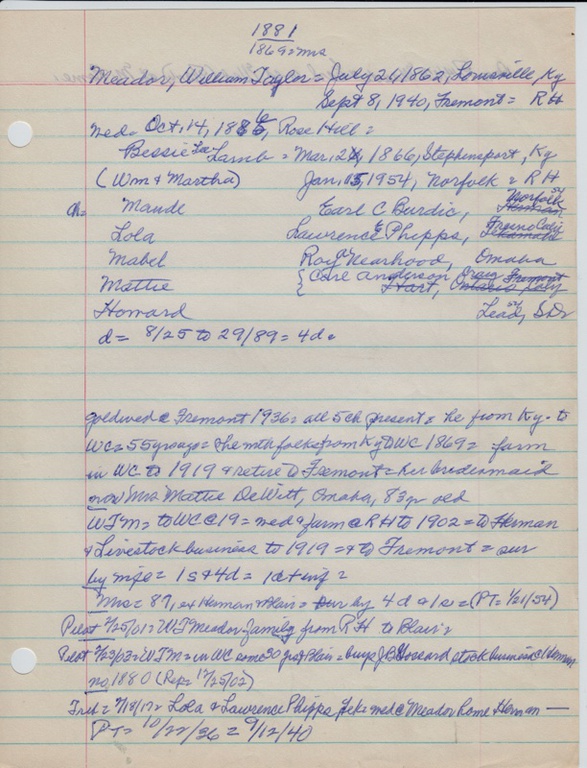 1881
1869 = mrs
Meador, William Taylor = July 24, 1862, Louisville, Ky
Sept 8, 1940, Fremont = R H
wed = Oct. 14, 1886, Rose Hill =
Bessie Lee Lamb = Mar. 24, 1866, Stephensport, Ky
(Wm & Martha) Jan. 15, 1954, Norfolk = R H
ch = Maude Earl C Burdic, Norfolk Herman
Lola Lawrence E Phipps, Fresno Calif Tekamah
Mabel Roy Nearhood, Omaha
Mattie { Carl Anderson, Craig Fremont Hart, Ontario
Howard Lead, SD
d = 8/25 to 29/89 = 4da
goldwed @ Fremont 1936 = all 5ch present = he from Ky - to
WC = 55 yrs ago = She with folks from Ky to WC 1869 = farm
in WC to 1919 & retire to Fremont = her bridesmaid
now Mrs Mattie DeWitt, Omaha, 83 yr old
WTM = to WC @ 19 = wed & farm @ R H to 1902 = to Herman
& Livestock business to 1919 = & to Fremont = sur
by wife = 1s & 4d =
Mrs = 87, ex Herman & Blair = sur by 4 d & 1s = (PT = 1/21/54)
Pilot 7/25/01 = WT Meador family from R H to Blair =
Pilot = WTM = in WC some 20 yrs & Blair = buys J B stock business @ Herman
no 1880 (Rep = 12/25/02)
Lola & Lawrence Phipps Teke wed @ Meador home Herman —
PT = 10/22/36 = 9/12/40